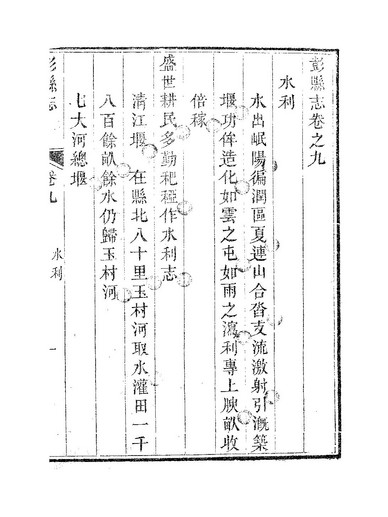 彭縣志卷之九
水利
水出岷陽徧潤區夏連山合沓支流激射引漑築
堰功侔造化如雲之屯如雨之瀉利專上腴畝收
倍稼
盛世耕民多勤耙稏作水利志
淸江堰 在縣北八十里玉村河取水灌田一千
八百餘畝餘水仍歸玉村河
七大河總堰
彭縣志
卷九
水利
一